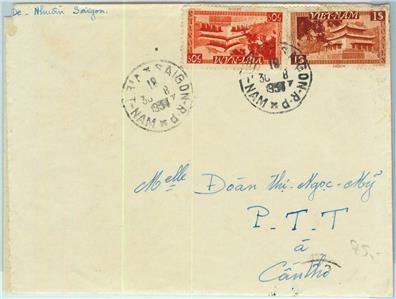 De - Nhuần Saigon.
50$
VIET-NAM
VIET-NAM
15
SAIGON-R.P
18
30 8
1957
VIET-NAM
SAIGON-R.P
18
30 8
1957
VIET-NAM
Melle Đoàn thị-Ngọc-Mỹ
P.T.T
à
Cần thơ
95,-